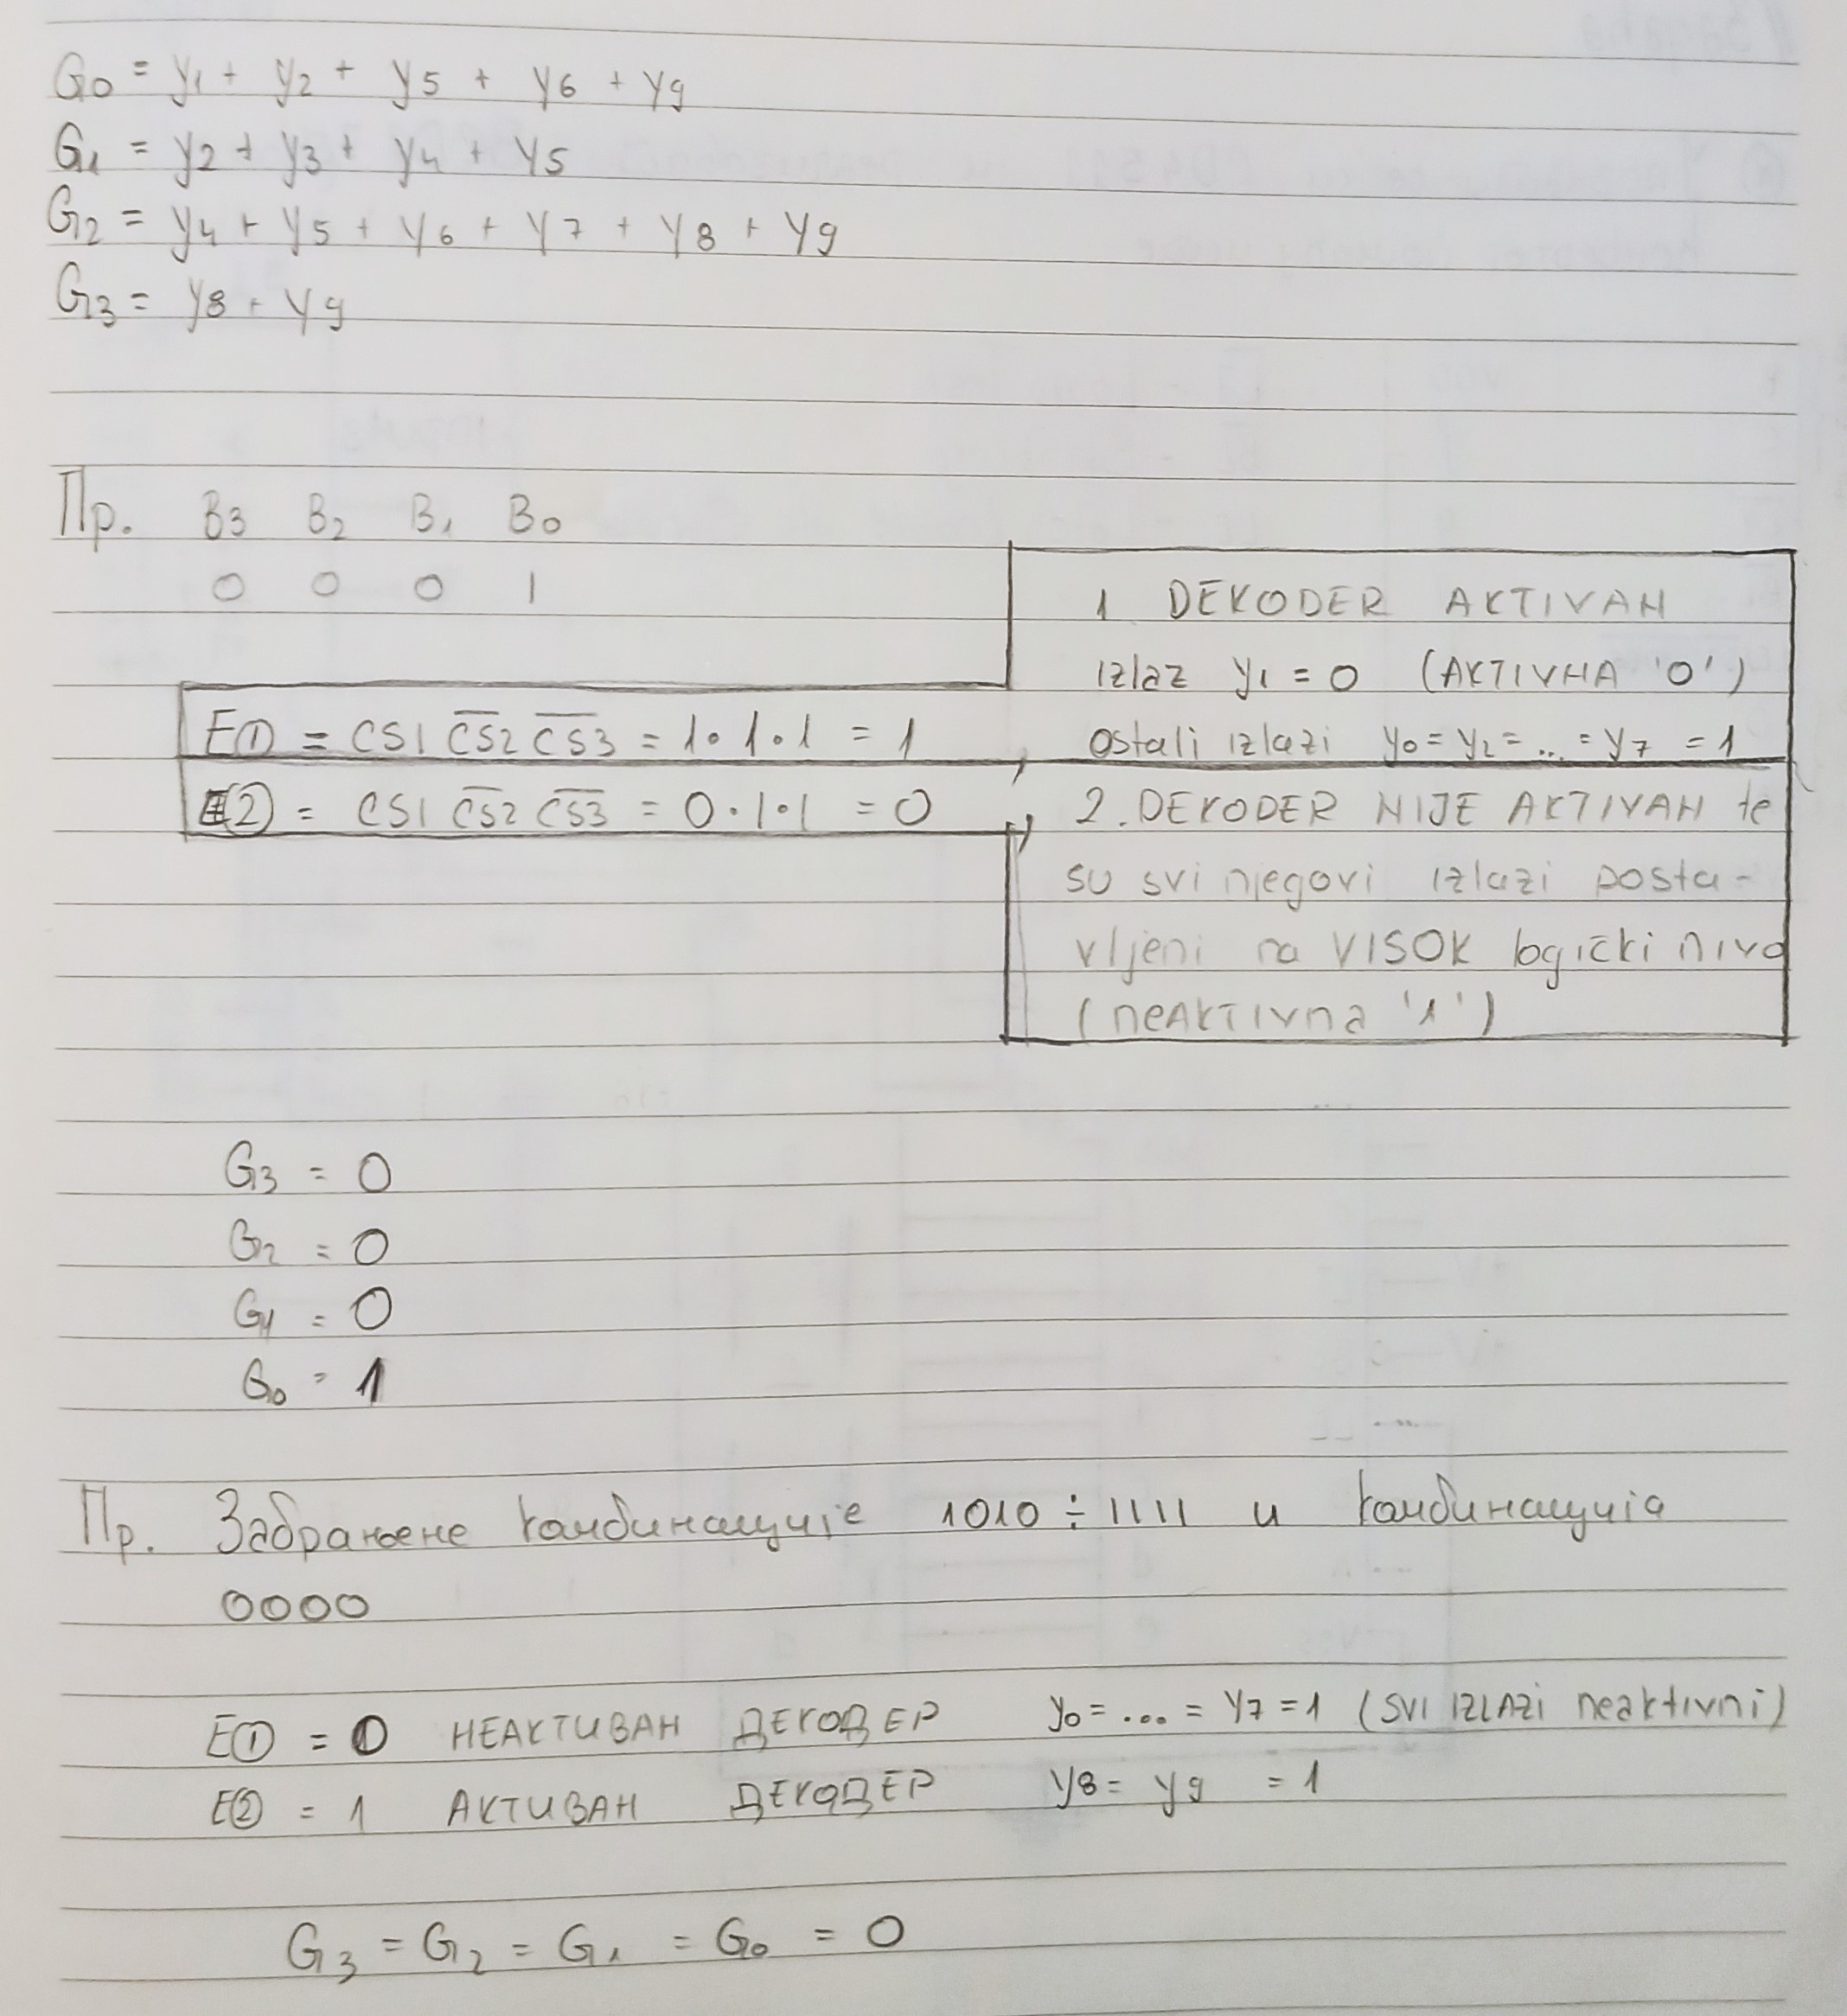 G0 = y1 + y2 + y5 + y6 + y9
G1 = y2 + y3 + y4 + y5
G2 = y4 + y5 + y6 + y7 + y8 + y9
G3 = y8 + y9
Пр. B3 B2 B1 B0
0 0 0 1
1 DEKODER AKTIVAN
izlaz y1 = 0 (AKTIVNA '0')
E① = CS1 C̅S̅2̅ C̅S̅3̅ = 1·1·1 = 1, ostali izlazi y0 = y2 = ... = y7 = 1
E② = CS1 C̅S̅2̅ C̅S̅3̅ = 0·1·1 = 0, 2. DEKODER NIJE AKTIVAN te
su svi njegovi izlazi posta-
vljeni na VISOK logički nivo
(neAKTIVna '1')
G3 = 0
G2 = 0
G1 = 0
G0 = 1
Пр. Забрањене комбинације 1010 ÷ 1111 и комбинација
0000
E① = 0 НЕАКТИВАН ДЕКОДЕР y0 = ... = y7 = 1 (SVI IZLAZI neaktivni)
E② = 1 АКТИВАН ДЕКОДЕР y8 = y9 = 1
G3 = G2 = G1 = G0 = 0